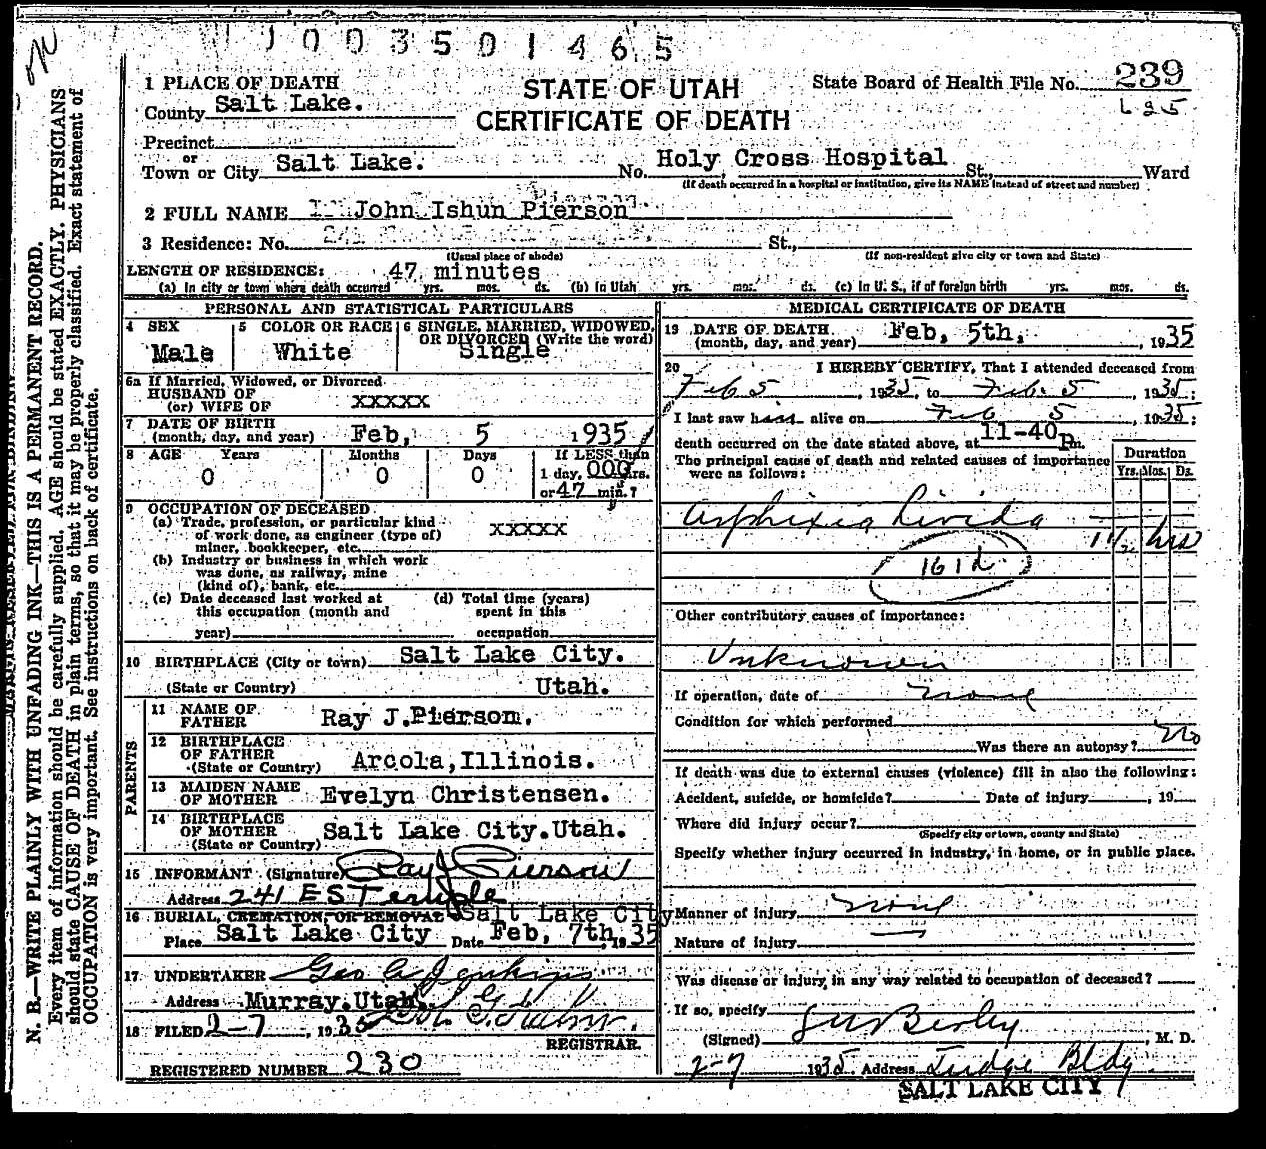 1003501465
1 PLACE OF DEATH
STATE OF UTAH
CERTIFICATE OF DEATH
State Board of Health File No. 239
County Salt Lake.
Precinct
or
Town or City Salt Lake. No. Holy Cross Hospital St., Ward
(If death occurred in a hospital or institution, give its NAME instead of street and number)
2 FULL NAME John Ishun Pierson
3 Residence: No. St.,
(Usual place of abode) (If non-resident give city or town and State)
LENGTH OF RESIDENCE: 47 minutes
(a) In city or town where death occurred yrs. mos. ds. (b) In Utah yrs. mos. ds. (c) In U. S., if of foreign birth yrs. mos. ds.
PERSONAL AND STATISTICAL PARTICULARS
4 SEX Male
5 COLOR OR RACE White
6 SINGLE, MARRIED, WIDOWED, OR DIVORCED (Write the word) Single
6a If Married, Widowed, or Divorced
HUSBAND OF
(or) WIFE OF xxxxx
7 DATE OF BIRTH
(month, day, and year) Feb, 5 1935
8 AGE Years Months Days If LESS than
0 0 0 1 day, 000 hrs.
or 47 min.?
9 OCCUPATION OF DECEASED
(a) Trade, profession, or particular kind
of work done, as engineer (type of) xxxxx
miner, bookkeeper, etc.
(b) Industry or business in which work
was done, as railway, mine
(kind of), bank, etc.
(c) Date deceased last worked at (d) Total time (years)
this occupation (month and spent in this
year) occupation
10 BIRTHPLACE (City or town) Salt Lake City.
(State or Country) Utah.
PARENTS
11 NAME OF
FATHER Ray J.Pierson.
12 BIRTHPLACE
OF FATHER
(State or Country) Arcola,Illinois.
13 MAIDEN NAME
OF MOTHER Evelyn Christensen.
14 BIRTHPLACE
OF MOTHER
(State or Country) Salt Lake City.Utah.
15 INFORMANT (Signature) Ray J Pierson
Address 241 E S Temple
16 BURIAL, CREMATION, OR REMOVAL Salt Lake City
Place Salt Lake City Date Feb, 7th, 1935
17 UNDERTAKER Geo A Jenkins
Address Murray.Utah.
18 FILED 2-7, 1935
REGISTRAR.
REGISTERED NUMBER 230
MEDICAL CERTIFICATE OF DEATH
19 DATE OF DEATH
(month, day, and year) Feb, 5th, , 1935
20 I HEREBY CERTIFY, That I attended deceased from
Feb 5, 1935, to Feb. 5, 1935;
I last saw him alive on Feb 5, 1935;
death occurred on the date stated above, at 11-40 P m.
The principal cause of death and related causes of importance
were as follows:
Duration
Yrs. Mos. Ds.
Asphixia Livida 1 1/2 hrs
161d
Other contributory causes of importance:
Unknown
If operation, date of none
Condition for which performed
Was there an autopsy? No
If death was due to external causes (violence) fill in also the following:
Accident, suicide, or homicide? Date of injury , 19
Where did injury occur?
(Specify city or town, county and State)
Specify whether injury occurred in industry, in home, or in public place.
Manner of injury none
Nature of injury
Was disease or injury in any way related to occupation of deceased?
If so, specify
(Signed) , M. D.
2-7 1935 Address Judge Bldg.
SALT LAKE CITY
N. B.—WRITE PLAINLY WITH UNFADING INK—THIS IS A PERMANENT RECORD.
Every item of information should be carefully supplied. AGE should be stated EXACTLY. PHYSICIANS
should state CAUSE OF DEATH in plain terms, so that it may be properly classified. Exact statement of
OCCUPATION is very important. See instructions on back of certificate.